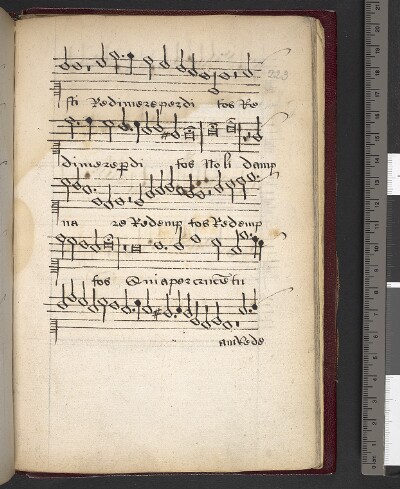 223
sti Redimere perdi tos Re
dimere pdi tos Noli damp
na re Redemp tos Redemp
tos Quia per crucē tu
am Rede